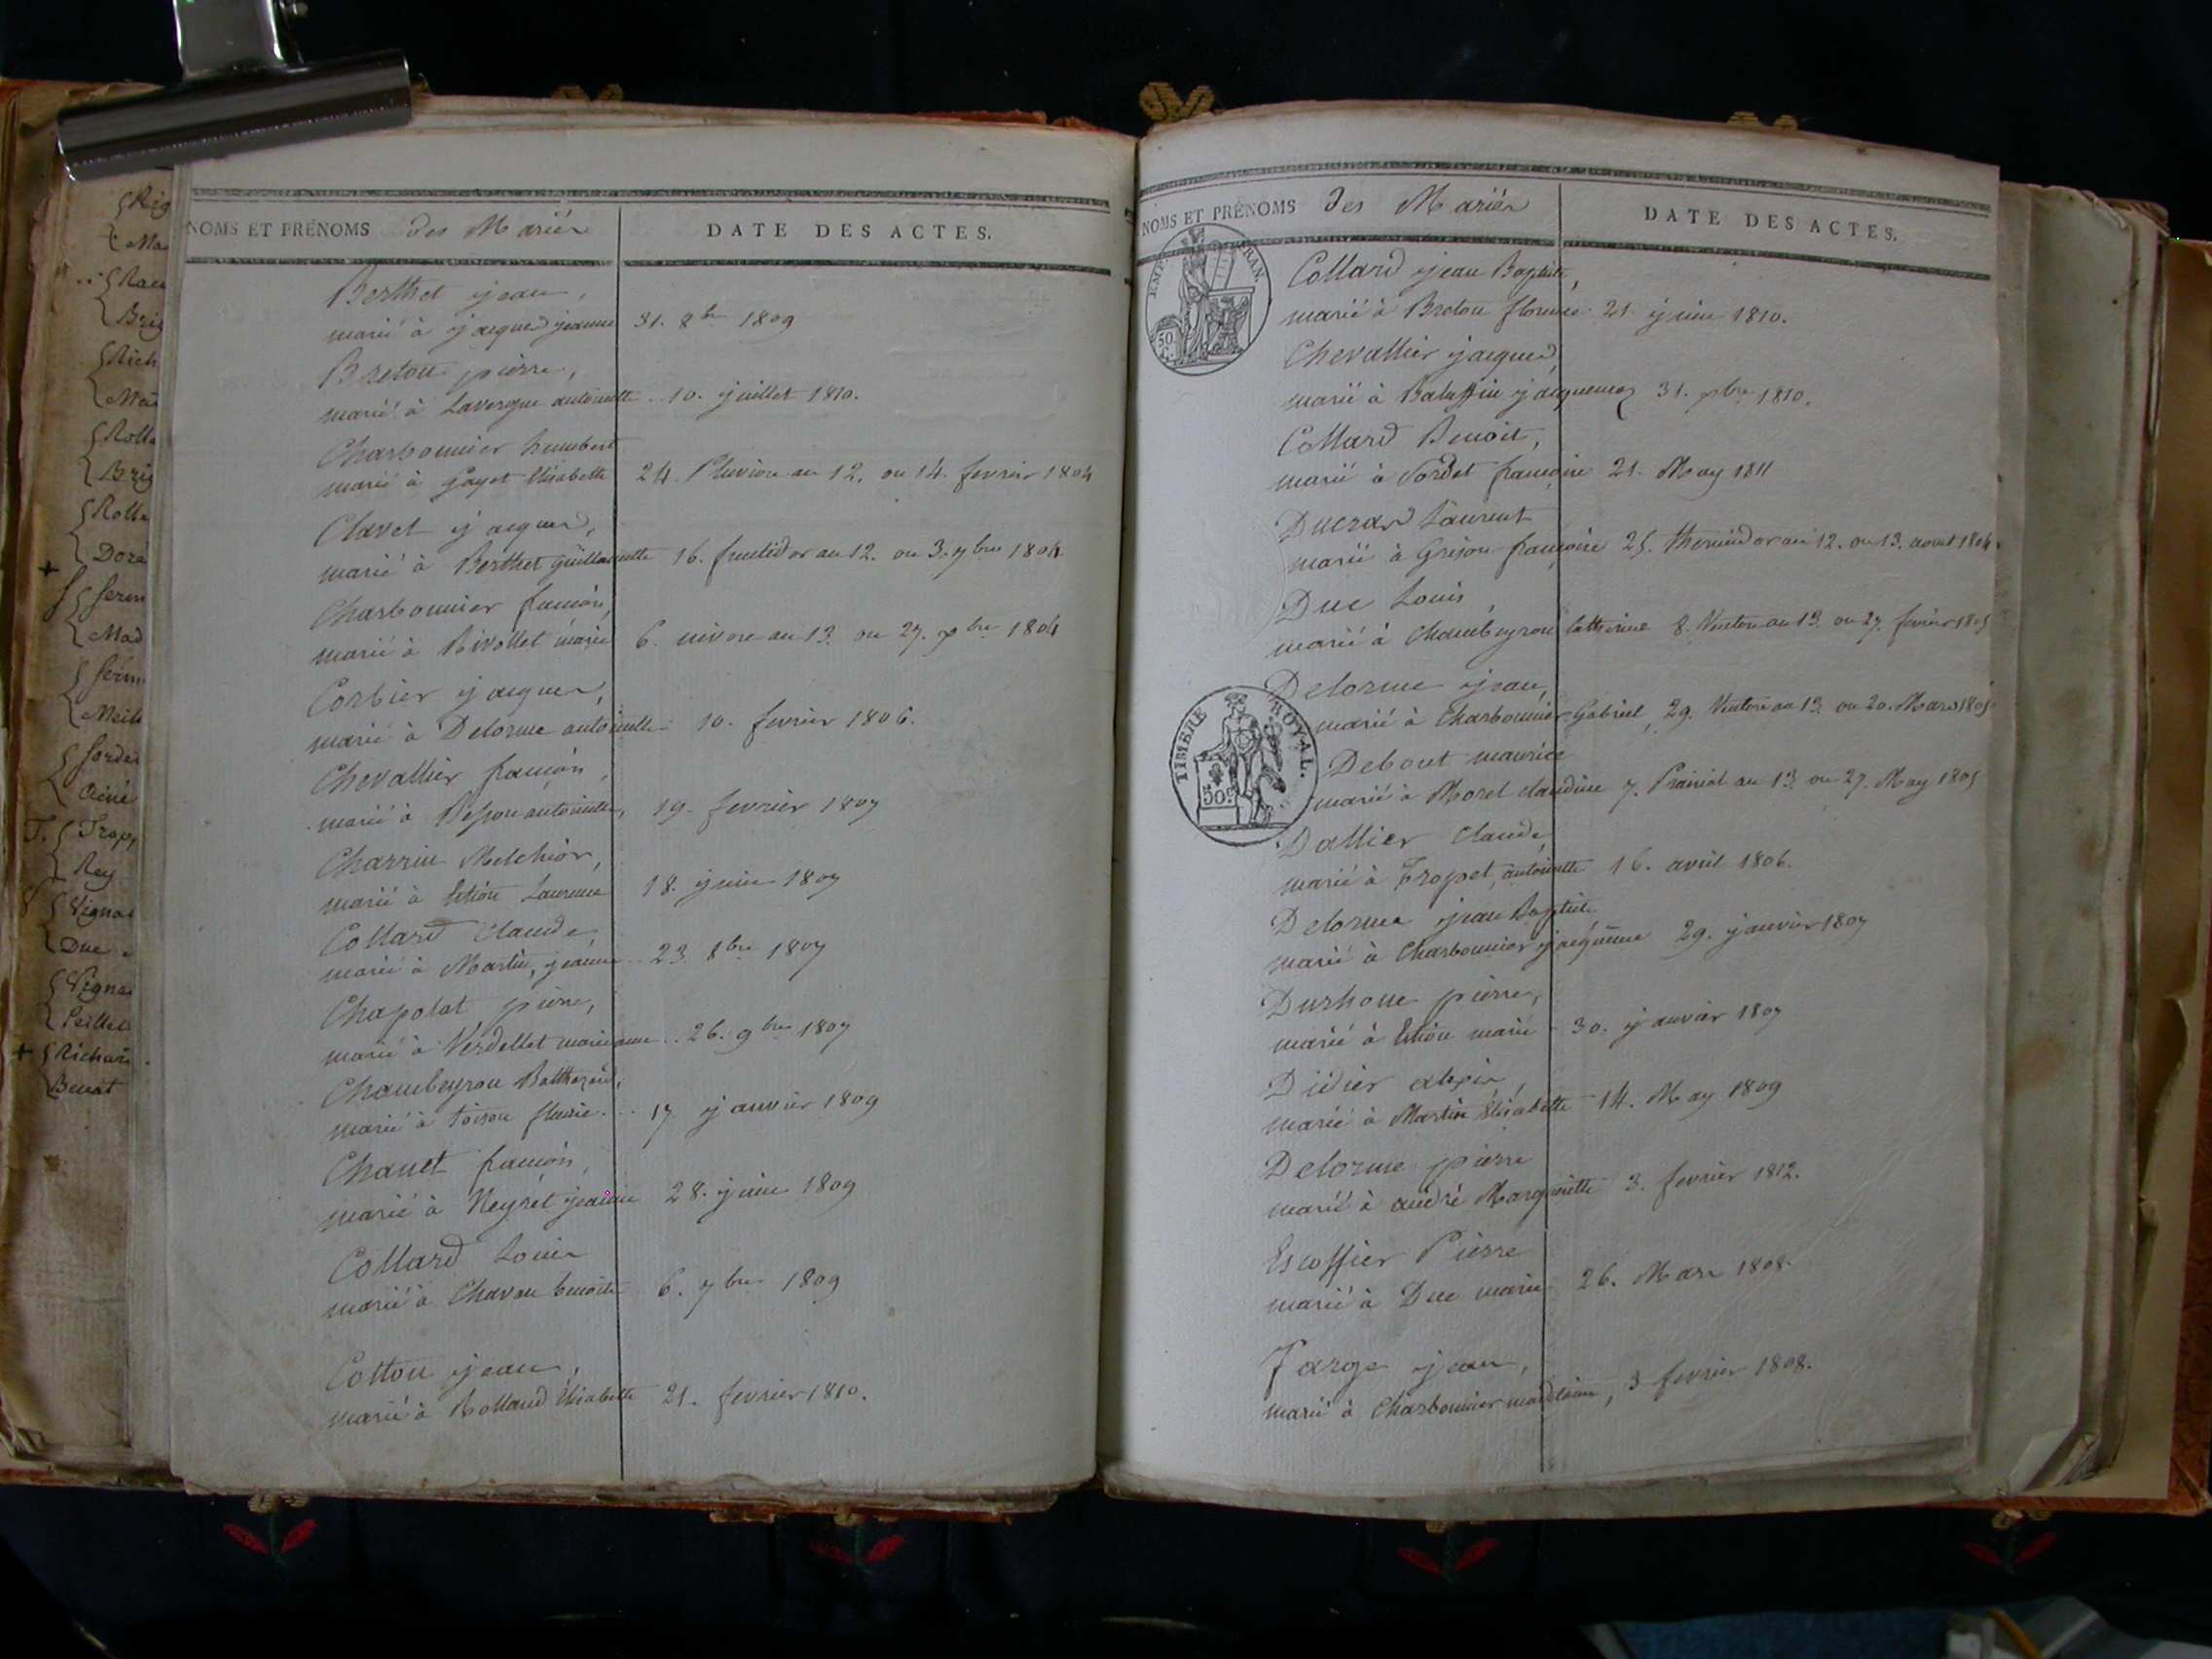 {Rig
{Ma
{Rau
{Brig
{Rich
{Mai
{Rolla
{Brig
{Rolla
{Doré
{Mad
{Meil
{Sordet
T. {Trop,
{Rey
{Vigna
{Duc
{Vigna
{Peillet
+ {Richar
{Benat
NOMS ET PRÉNOMS des Mariés
DATE DES ACTES.
Berthet jean,
marié à jacques jeanne 31. 8bre 1809
Breton pierre,
marié à Lavergne antoinette 10. juillet 1810.
Charbonnier humbert
marié à Gayet Elisabette 24. Pluviose an 12. ou 14. fevrier 1804
Clavel jacques,
marié à Berthet Guillaumette 16. fructidor an 12. ou 3. 7bre 1804
Charbonnier francois,
marié à Rivollet marie 6. nivose an 13. ou 27. xbre 1804
Corbier jacques,
marié à Delorme antoinette 10. fevrier 1806.
Chevallier francois,
marié à Besson antoinette, 19. fevrier 1807
Charrin Melchior,
marié à Laurence 18. juin 1807
Collard Claude,
marié à Martin, jeanne 23. 8bre 1807
Chapolat pierre,
marié à Verdellet marieanne 26. 9bre 1807
Chambeyron Balthazard,
marié à toison fleurie 17 janvier 1809
Chanet francois,
marié à Neyret jeanne 28. juin 1809
Collard Louis
marié à Chavan benoite 6. 7bre 1809
Cotton jean,
marié à Rolland Elisabette 21. fevrier 1810.
NOMS ET PRÉNOMS des Mariés
DATE DES ACTES.
EMP. FRAN.
50 C.
Collard jean Baptiste,
marié à Breton florence 21 juin 1810.
Chevallier jacques,
marié à Baluffin jacquemes 31. xbre 1810.
Collard Benoit,
marié à Sordet francoise 21. May 1811
Ducrar Laurent
marié à Grison francoise 25. thermidor an 12. ou 13. aout 1804.
Duc Louis,
marié à Chambeyron Catherine 8. Ventose an 13. ou 27. fevrier 1805
TIMBRE ROYAL.
50 C.
Delorme jean,
marié à Charbonnier Gabriel, 29. Ventose an 13. ou 20. Mars 1805
Debout maurice
marié à Morel claudine 7. Prairial an 13. ou 27. May 1805
Dallier Claude,
marié à Tropet, antoinette 16. avril 1806.
Delorme jean Baptiste
marié à Charbonnier jacqueme 29. janvier 1807
Durhone pierre,
marié à marie 30. janvier 1807
Didier alexis,
marié à Martin Elisabette 14. May 1809
Delorme pierre
marié à andré Margueritte 3. fevrier 1812.
Escoffier Pierre
marié à Duc marie 26. Mars 1808.
Farge jean,
marié à Charbonnier madelaine, 3 fevrier 1808.